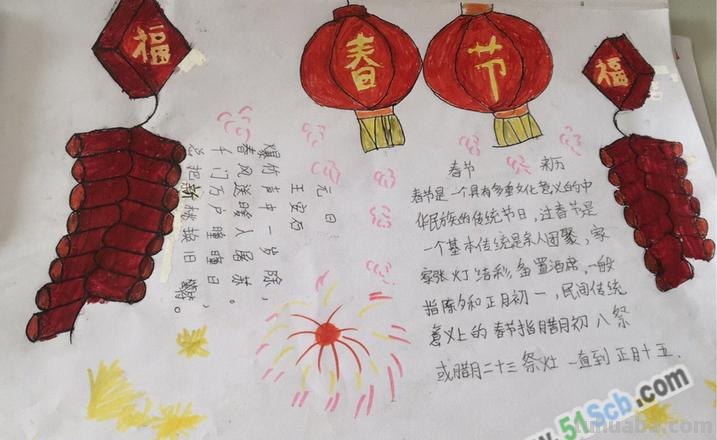 福
春
节
福
元日:
王安石
爆竹声中一岁除,
春风送暖入屠苏。
千门万户瞳瞳日,
总把新桃换旧。
春节 来历
春节是一个具有多重文化意义的中
华民族的传统节日,过春节是
一个基本传统是亲人团聚,家
家张灯结彩,备置酒席,一般
指除夕和正月初一,民间传统
意义上的春节指腊月初八祭
或腊月二十三祭灶 一直到正月十五.
51Scb.com